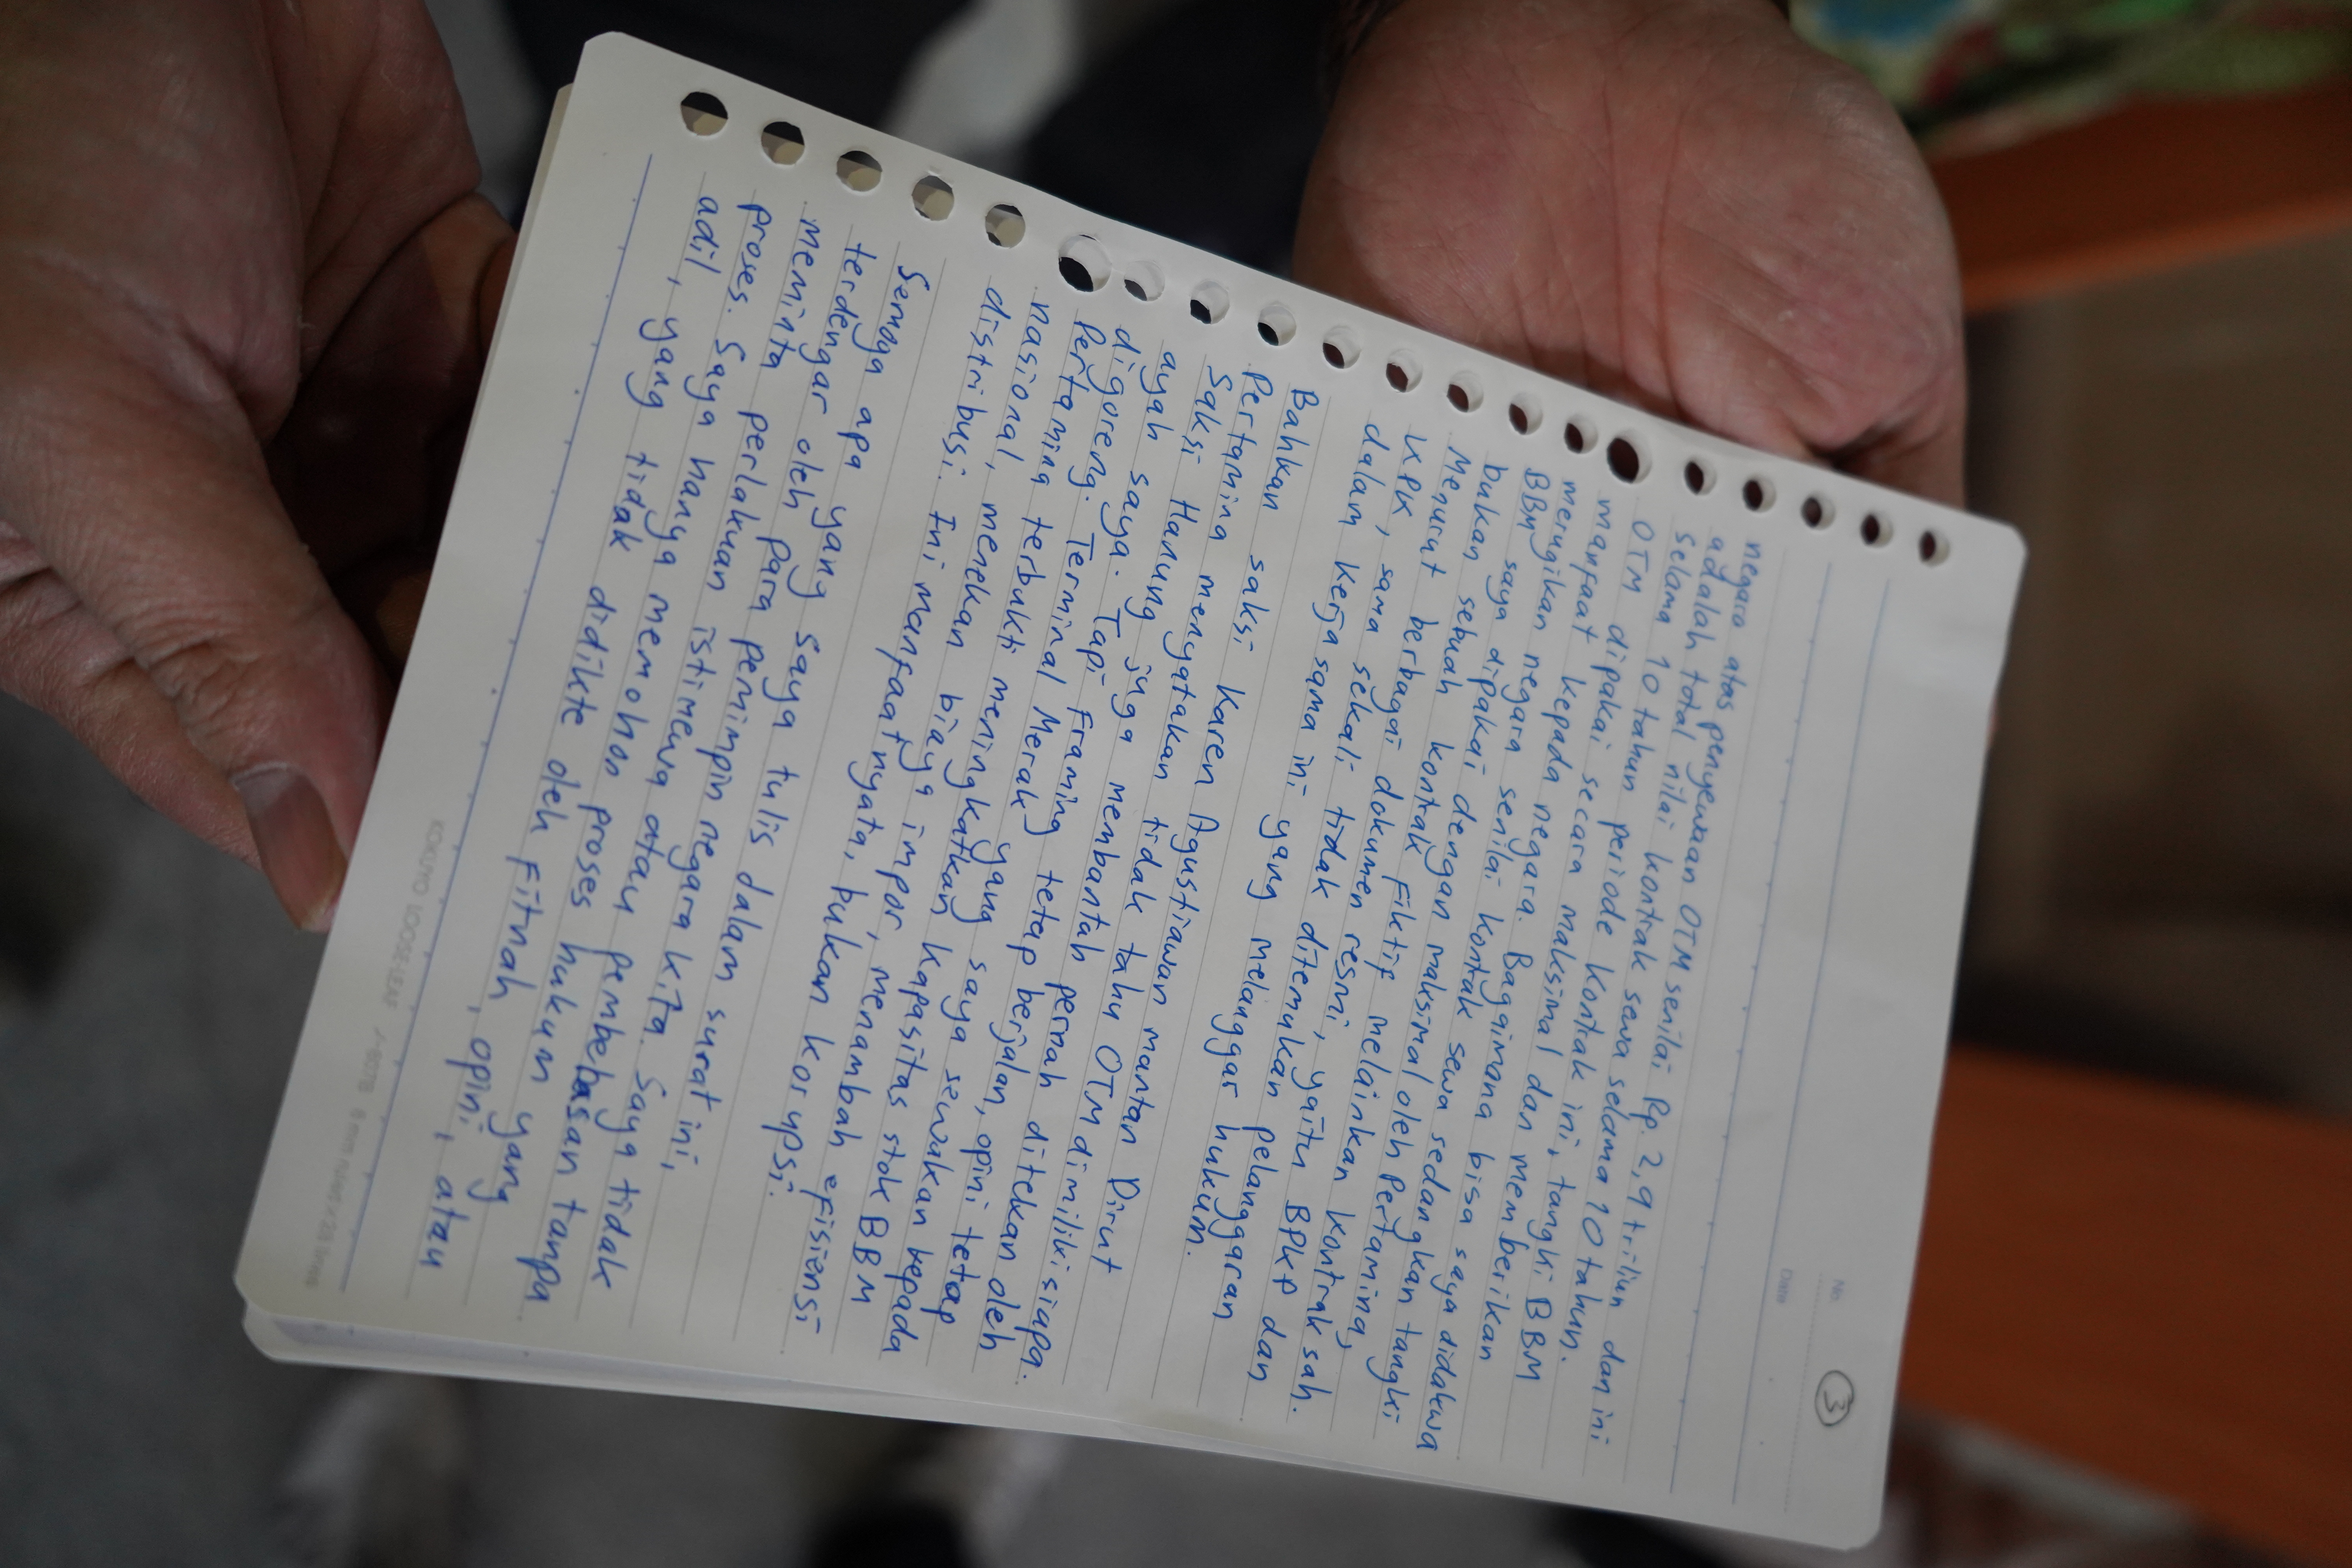 ③
No.
Date
negara atas penyewaan OTM senilai Rp. 2,9 triliun dan ini
adalah total nilai kontrak sewa selama 10 tahun.
selama 10 tahun periode kontak ini, tangki BBM
OTM dipakai secara maksimal dan memberikan
manfaat kepada negara. Bagaimana bisa saya didakwa
merugikan negara senilai kontak sewa sedangkan tangki
BBM saya dipakai dengan maksimal oleh Pertamina,
bukan sebuah kontrak fiktif melainkan kontrak sah.
Menurut berbagai dokumen resmi, yaitu BPKP dan
KPK, sama sekali tidak ditemukan pelanggaran
dalam kerja sama ini yang melanggar hukum.
Bahkan saksi Karen Agustiawan mantan Dirut
Pertamina menyatakan tidak tahu OTM dimiliki siapa.
Saksi Hanung juga membantah pernah ditekan oleh
ayah saya. Tapi framing tetap berjalan, opini tetap
digoreng. Terminal Merak yang saya sewakan kepada
Pertamina terbukti meningkatkan kapasitas stok BBM
nasional, menekan biaya impor, menambah efisiensi
distribusi. Ini manfaat nyata, bukan korupsi.
Semoga apa yang saya tulis dalam surat ini,
terdengar oleh para pemimpin negara kita. Saya tidak
meminta perlakuan istimewa atau pembebasan tanpa
proses. Saya hanya memohon proses hukum yang
adil, yang tidak didikte oleh fitnah, opini, atau
KOKUYO LOOSE-LEAF